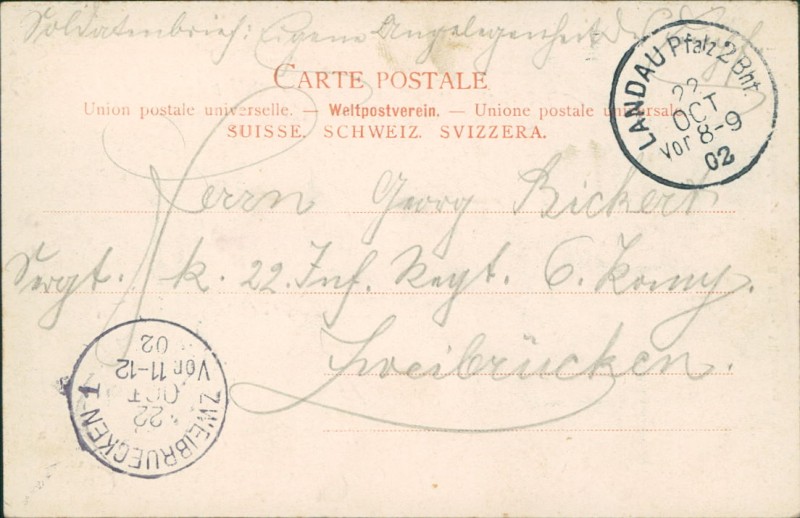 Soldatenbrief: Eigene Angelegenheit d.
CARTE POSTALE
Union postale universelle. — Weltpostverein. — Unione postale universale
SUISSE. SCHWEIZ. SVIZZERA.
LANDAU Pfalz 2 Bhf.
22
OCT
Vor 8-9
02
Herrn Georg Bickert
Sergt. k. 22. Inf. Regt. 6. Komp.
Zweibrücken.
ZWEIBRUECKEN 1
22
OCT
Vor 11-12
02